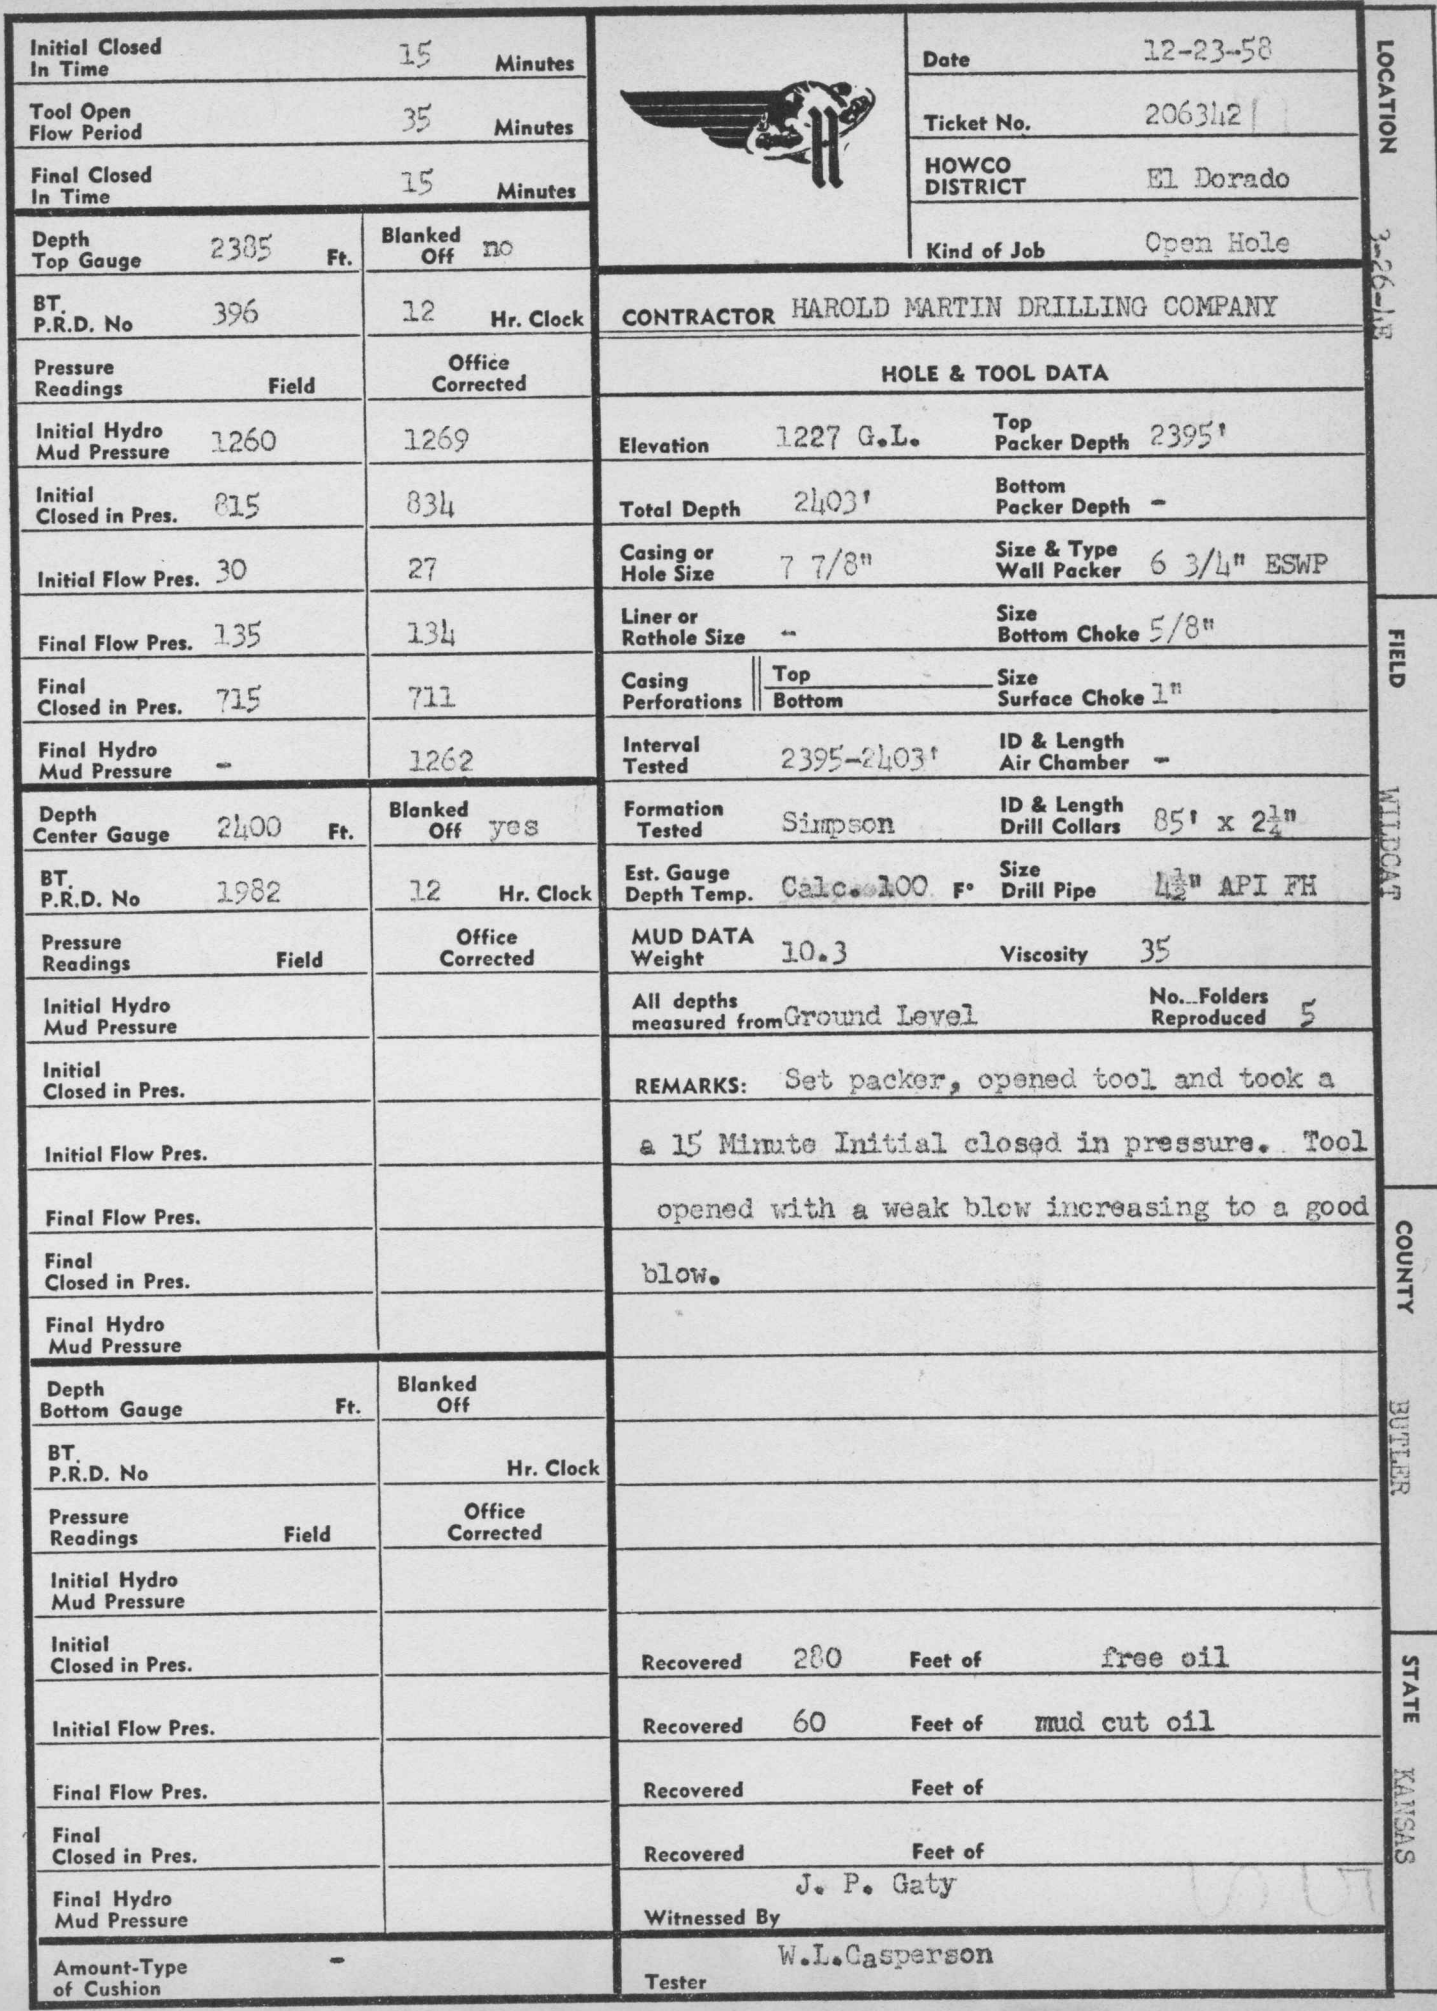 Initial Closed
In Time 15 Minutes
Tool Open
Flow Period 35 Minutes
Final Closed
In Time 15 Minutes
Depth
Top Gauge 2385 Ft. Blanked Off no
BT.
P.R.D. No 396 12 Hr. Clock
Pressure
Readings Field Office Corrected
Initial Hydro
Mud Pressure 1260 1269
Initial
Closed in Pres. 815 834
Initial Flow Pres. 30 27
Final Flow Pres. 135 134
Final
Closed in Pres. 715 711
Final Hydro
Mud Pressure - 1262
Depth
Center Gauge 2400 Ft. Blanked Off yes
BT.
P.R.D. No 1982 12 Hr. Clock
Pressure
Readings Field Office Corrected
Initial Hydro
Mud Pressure
Initial
Closed in Pres.
Initial Flow Pres.
Final Flow Pres.
Final
Closed in Pres.
Final Hydro
Mud Pressure
Depth
Bottom Gauge Ft. Blanked Off
BT.
P.R.D. No Hr. Clock
Pressure
Readings Field Office Corrected
Initial Hydro
Mud Pressure
Initial
Closed in Pres.
Initial Flow Pres.
Final Flow Pres.
Final
Closed in Pres.
Final Hydro
Mud Pressure
Amount-Type
of Cushion -
H
Date 12-23-58
Ticket No. 206342
HOWCO
DISTRICT El Dorado
Kind of Job Open Hole
CONTRACTOR HAROLD MARTIN DRILLING COMPANY
HOLE & TOOL DATA
Elevation 1227 G.L. Top Packer Depth 2395'
Total Depth 2403' Bottom Packer Depth -
Casing or
Hole Size 7 7/8" Size & Type Wall Packer 6 3/4" ESWP
Liner or
Rathole Size - Size Bottom Choke 5/8"
Casing
Perforations Top Bottom Size Surface Choke 1"
Interval
Tested 2395-2403' ID & Length Air Chamber -
Formation
Tested Simpson ID & Length Drill Collars 85' x 2¼"
Est. Gauge
Depth Temp. Calc. 100 F° Size Drill Pipe 4½" API FH
MUD DATA
Weight 10.3 Viscosity 35
All depths
measured from Ground Level No. Folders Reproduced 5
REMARKS: Set packer, opened tool and took a
a 15 Minute Initial closed in pressure. Tool
opened with a weak blow increasing to a good
blow.
Recovered 280 Feet of free oil
Recovered 60 Feet of mud cut oil
Recovered Feet of
Recovered Feet of
J. P. Gaty
Witnessed By
W.L.Gasperson
Tester
LOCATION 3-26-4E
FIELD WILDCAT
COUNTY BUTLER
STATE KANSAS